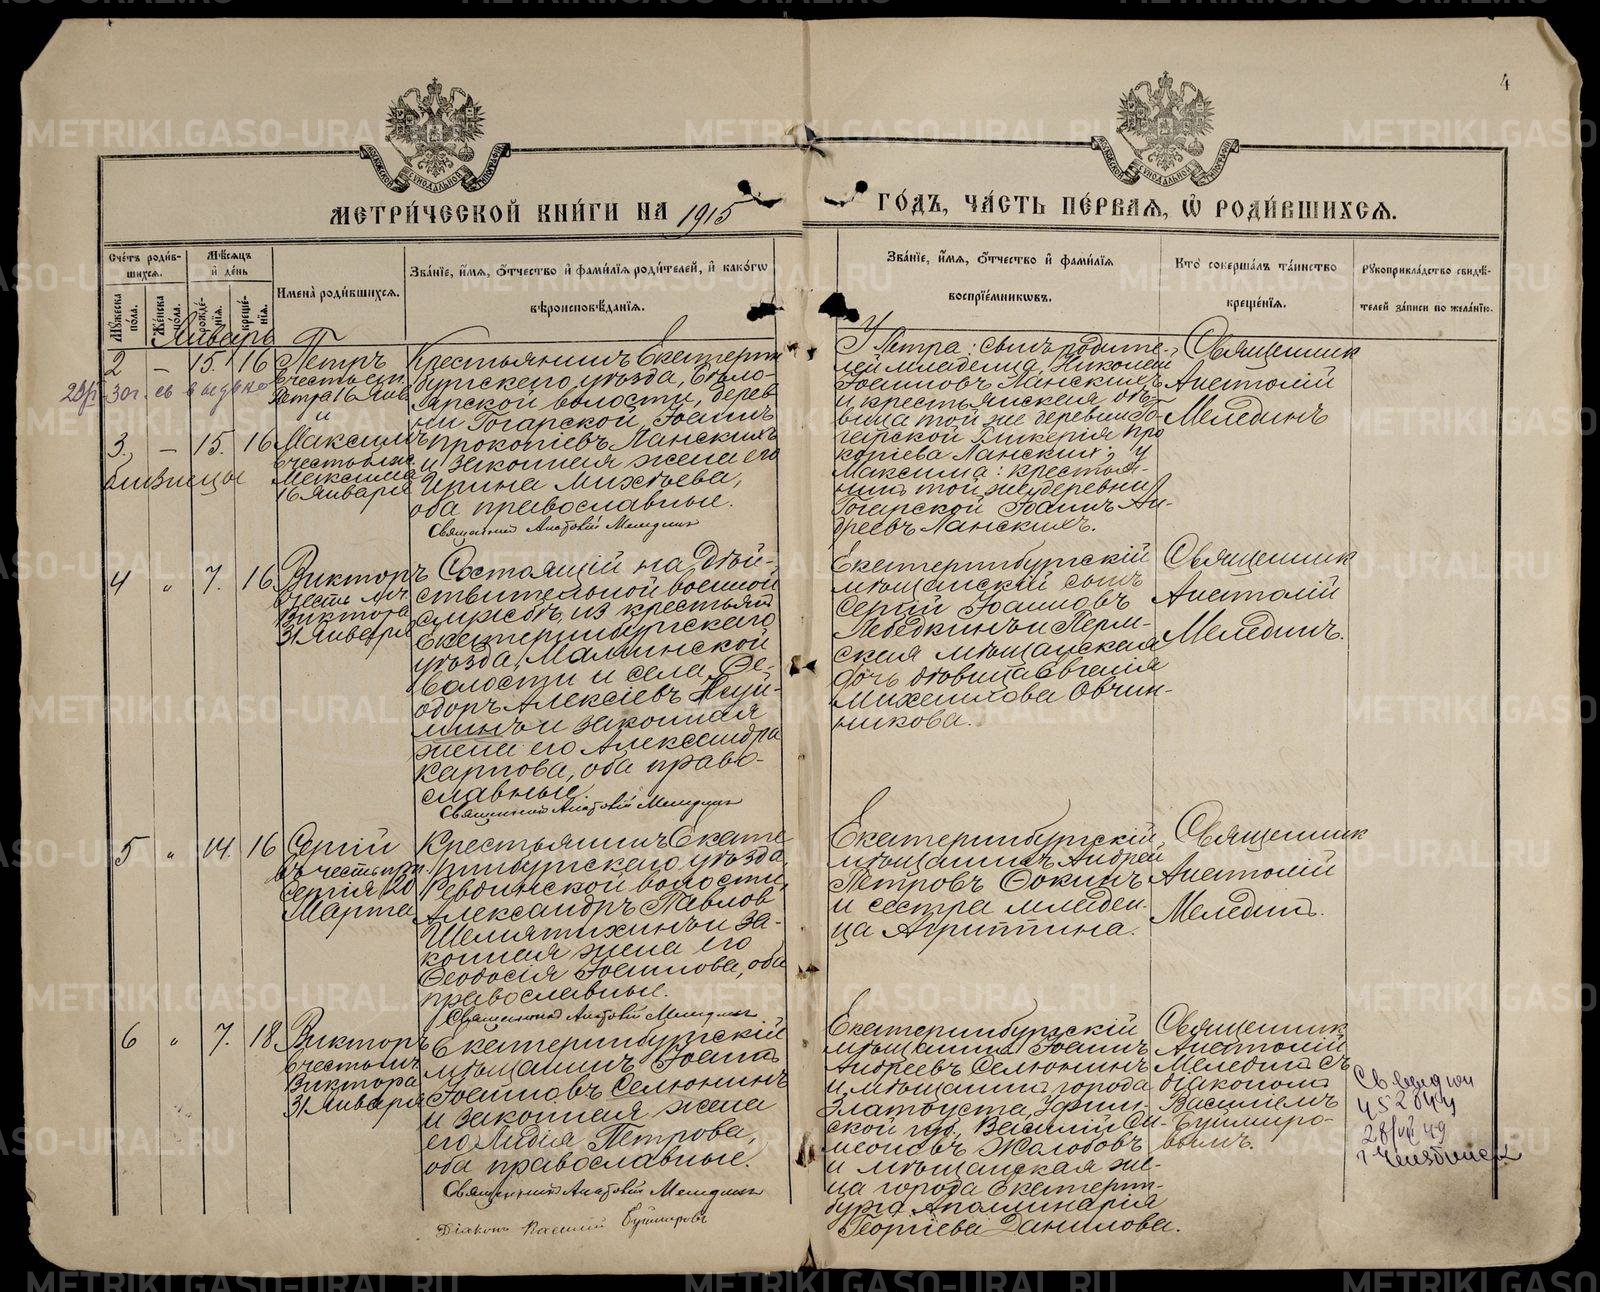 4
МЕТРИ́ЧЕСКОЙ КНИ́ГИ НА 1915
ГО́ДЪ, ЧА́СТЬ ПЕ́РВАЯ, Ѿ РОДИ́ВШИХСЯ.
Сче́тъ роди́в-
шихся.
Мѣ́сяцъ
и҆ де́нь
Мꙋ́жеска
пола.
Же́нска
по́ла.
рожде́-
нія.
креще́-
нія.
И҆мена̀ роди́вшихся.
Зва́нїе, и҆́мя, ѻ҆́тчество и҆ фами́лїя роди́телей, и҆ како́гѡ
вѣроисповѣ́данїя.
Зва́нїе, и҆́мя, ѻ҆́тчество и҆ фами́лїя
воспрїе́мникѡвъ.
Кто̀ соверша́лъ та́инство
креще́нїя.
Рꙋкоприкла́дство свидѣ́-
телей за́писи по жела́нїю.
Январь
2 – 15. 16 Петръ
въ честь ап.
Петра 16 Янв
и
3. – 15. 16 Максимъ
въ честь блж.
Максима
16 Января
близнецы
Крестьянинъ Екатерин
бургскаго уѣзда, Бѣло-
ярской волости, дерев
ни Гагарской, Іоаннъ
Прокопіевъ Ланскихъ
и законная жена его
Ирина Михѣева,
оба православные.
Священникъ Анатолій Мелединъ
У Петра: сынъ родите-
лей младенца, Николай
Іоанновъ Ланскихъ
и крестьянская дѣ-
вица той же деревни Га-
гарской Гликерія Про
копіева Ланскихъ; у
Максима: крестья-
нинъ той же деревни
Гагарской Іоаннъ Ан-
дреевъ Ланскихъ.
Священник
Анатолій
Мелединъ
4 " 7. 16 Викторъ
въ честь мч.
Виктора
31 Января
Состоящій на дѣй-
ствительной военной
службѣ, из крестьянъ
Екатеринбургскаго
уѣзда, Маминской
волости и села, Ѳе-
одоръ Алексіевъ
и законная
жена его Александра
Карпова, оба право-
славные.
Священникъ Анатолій Мелединъ
Екатеринбургскій
мѣщанскій сынъ
Сергій Іоанновъ
Лебедкинъ и Перм-
ская мѣщанская
дочь дѣвица Евгенія
Михаилова Овчин-
никова.
Священник
Анатолій
Мелединъ.
5 " 14. 16 Сергій
въ честь прп.
Сергія 20
Марта
Крестьянинъ Екате
ринбургскаго уѣзда,
Ревдинской волости,
Александръ Павлов
Шемятихинъ и за-
конная жена его
Ѳеодосія Іоаннова, оба
православные.
Священникъ Анатолій Мелединъ.
Екатеринбургскій
мѣщанинъ Андрей
Петровъ Ѳокинъ
и сестра младен-
ца Агриппина.
Священник
Анатолій
Мелединъ.
6 " 7. 18 Викторъ
въ честь мч.
Виктора
31 Января
Екатеринбургскій
мѣщанинъ Іоаннъ
Іоанновъ Селюнинъ
и законная жена
его Лидія Петрова,
оба православные.
Священникъ Анатолій Мелединъ
Діаконъ Василій Бушмировъ
Екатеринбургскій
мѣщанинъ Іоаннъ
Андреевъ Селюнинъ
и мѣщанинъ города
Златоуста, Уфим-
ской губ. Василій Си-
меоновъ Жолобовъ
и мѣщанская же-
на города Екатерин-
бурга Аполлинарія
Георгіева Данилова.
Священник
Анатолій
Мелединъ съ
діакономъ
Василіемъ
Бушмиро-
вымъ.